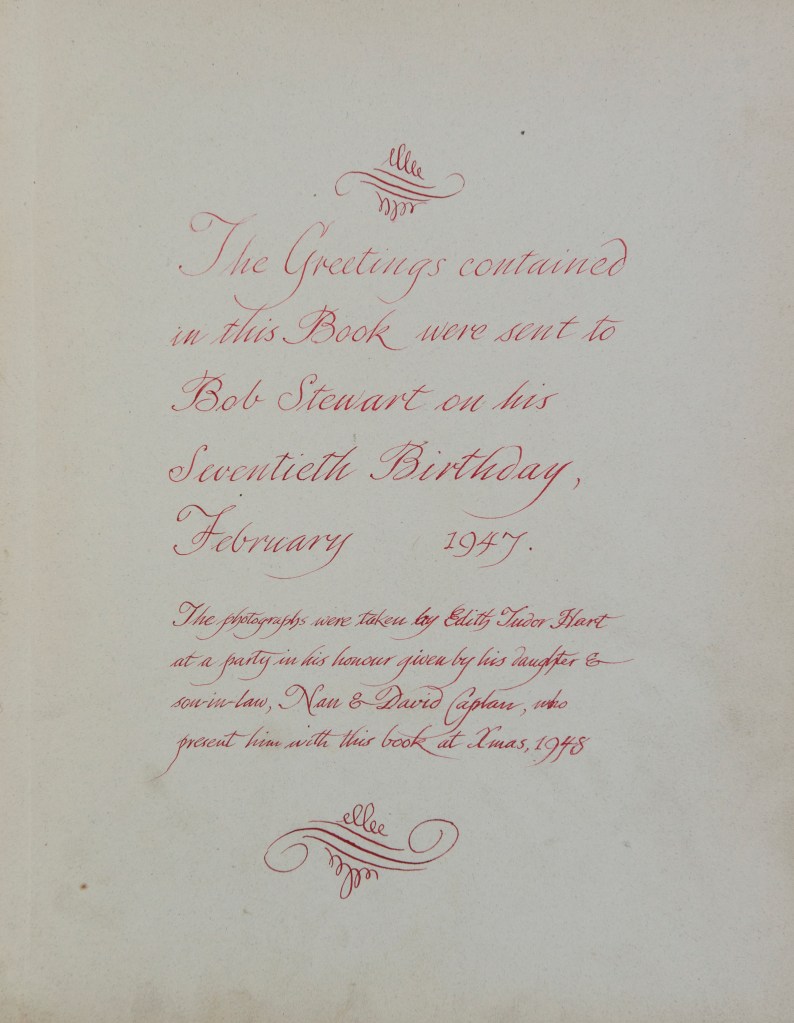 The Greetings contained
in this Book were sent to
Bob Stewart on his
Seventieth Birthday,
February 1947.
The photographs were taken by Edith Tudor Hart
at a party in his honour given by his daughter &
son-in-law, Nan & David Caplan, who
present him with this book at Xmas, 1948